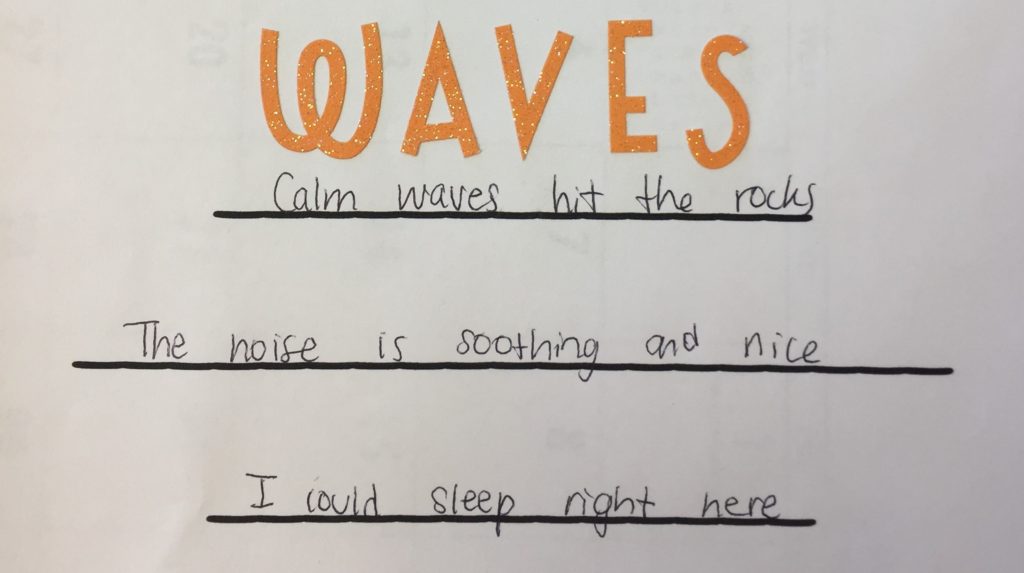 WAVES
Calm waves hit the rocks
The noise is soothing and nice
I could sleep right here